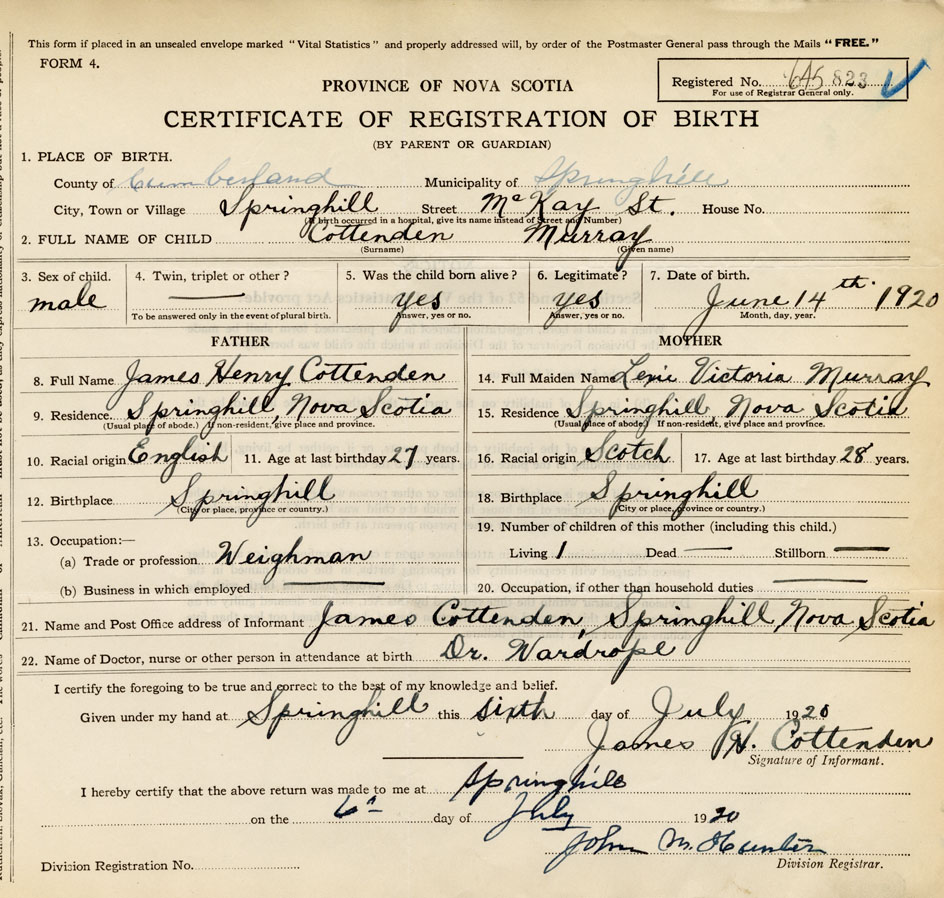 This form if placed in an unsealed envelope marked "Vital Statistics" and properly addressed will, by order of the Postmaster General pass through the Mails "FREE."
FORM 4.
Registered No. 645 823
For use of Registrar General only.
PROVINCE OF NOVA SCOTIA
CERTIFICATE OF REGISTRATION OF BIRTH
(BY PARENT OR GUARDIAN)
1. PLACE OF BIRTH.
County of Cumberland Municipality of Springhill
City, Town or Village Springhill Street McKay St. House No.
(If birth occurred in a hospital, give its name instead of Street and Number)
2. FULL NAME OF CHILD Cottenden Murray
(Surname) (Given name)
3. Sex of child. 4. Twin, triplet or other? 5. Was the child born alive? 6. Legitimate? 7. Date of birth.
male yes yes June 14th 1920
To be answered only in the event of plural birth. Answer, yes or no. Answer, yes or no. Month, day, year.
FATHER MOTHER
8. Full Name James Henry Cottenden 14. Full Maiden Name Lexie Victoria Murray
9. Residence Springhill, Nova Scotia 15. Residence Springhill, Nova Scotia
(Usual place of abode.) If non-resident, give place and province. (Usual place of abode.) If non-resident, give place and province.
10. Racial origin English 11. Age at last birthday 27 years. 16. Racial origin Scotch 17. Age at last birthday 28 years.
12. Birthplace Springhill 18. Birthplace Springhill
(City or place, province or country.) (City or place, province or country.)
13. Occupation:— 19. Number of children of this mother (including this child.)
(a) Trade or profession Weighman Living 1 Dead — Stillborn —
(b) Business in which employed 20. Occupation, if other than household duties
21. Name and Post Office address of Informant James Cottenden, Springhill, Nova Scotia
22. Name of Doctor, nurse or other person in attendance at birth Dr. Wardrope
I certify the foregoing to be true and correct to the best of my knowledge and belief.
Given under my hand at Springhill this sixth day of July 1920
James H. Cottenden
Signature of Informant.
I hereby certify that the above return was made to me at Springhill
on the 6th day of July 1920
John M. Hunter
Division Registration No. Division Registrar.